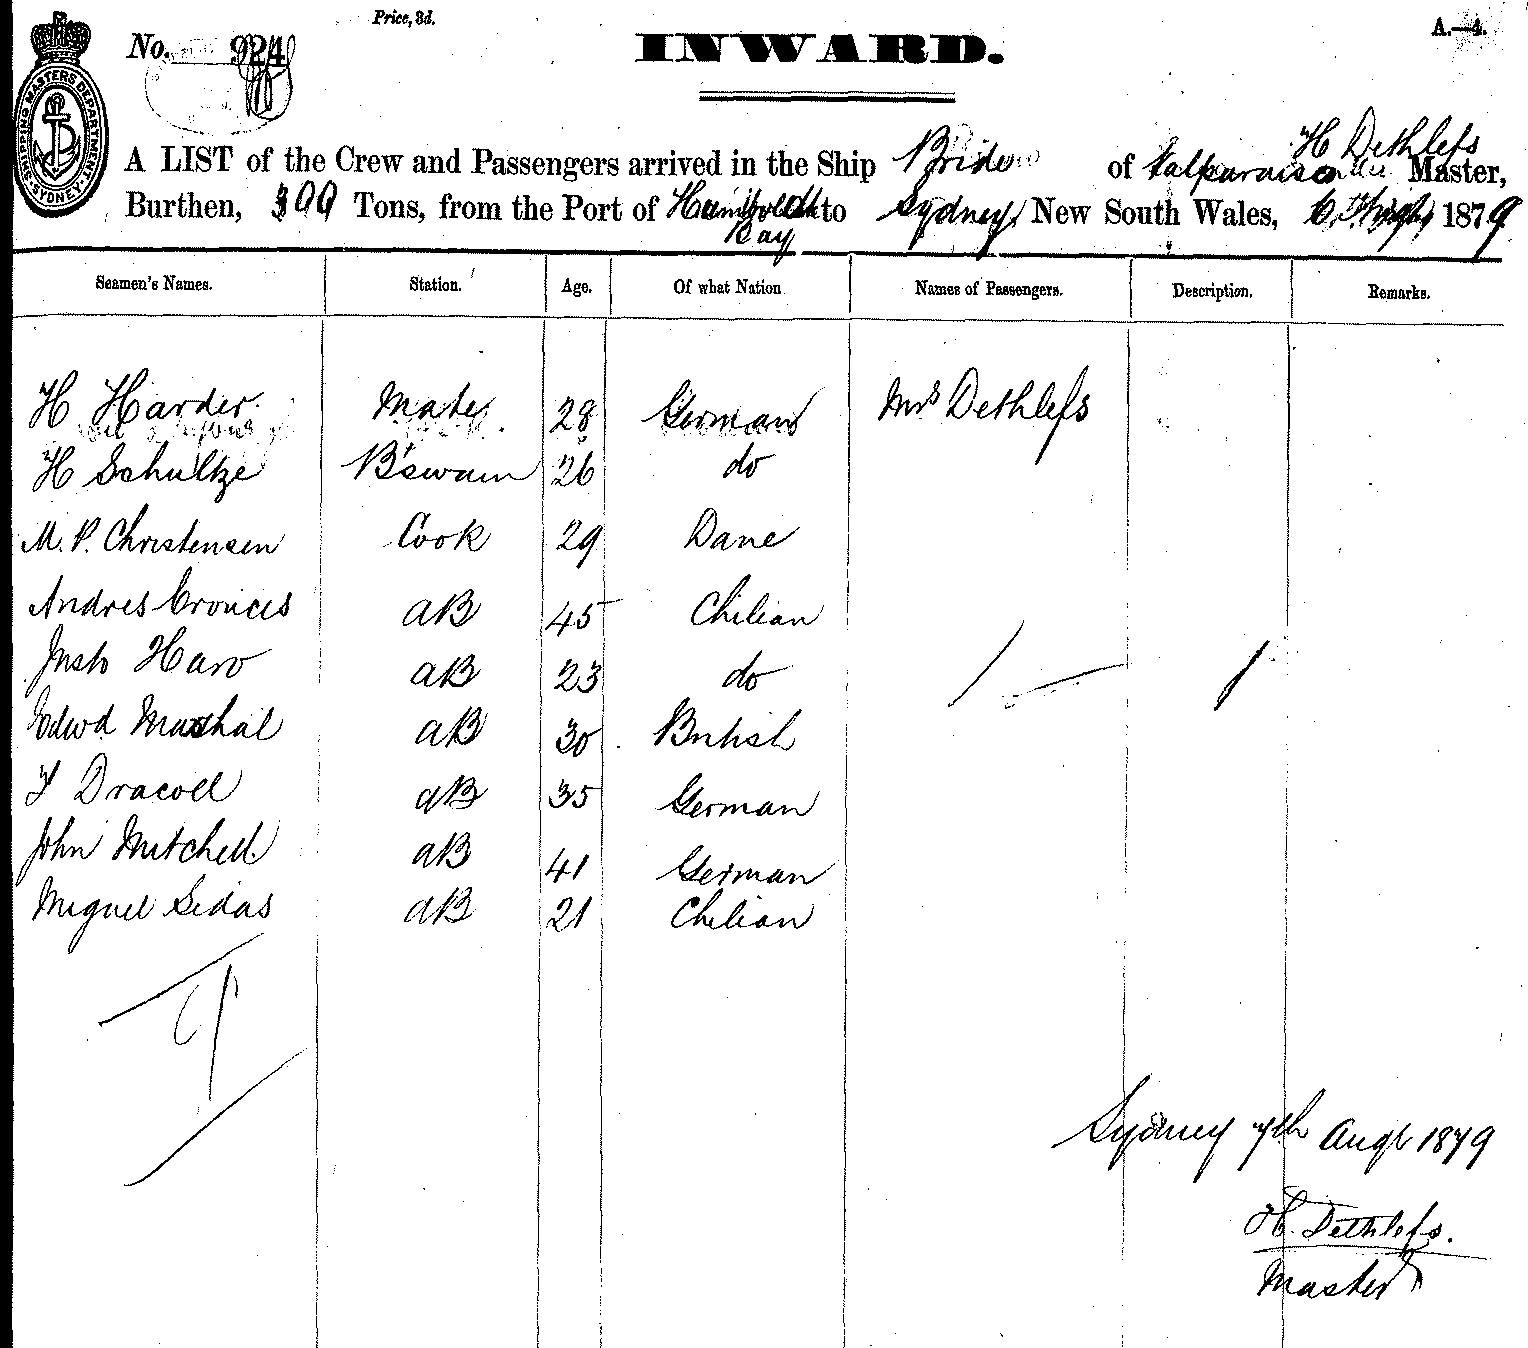 Price, 3d.
A.—4.
No. 924
INWARD.
SHIPPING MASTERS DEPARTMENT SYDNEY
H Dethlefs
A LIST of the Crew and Passengers arrived in the Ship Bride of Valparaiso Master,
Burthen, 300 Tons, from the Port of Humboldt to Sydney New South Wales, 1879
Bay
Seamen's Names. Station. Age. Of what Nation Names of Passengers. Description. Remarks.
H Harder Mate 28 German Mrs Dethlefs
H Schultze B'swain 26 do
M. P. Christensen Cook 29 Dane
Andres AB 45 Chilian
Justo Haro AB 23 do
Edwd Marshal AB 30 British
F Dracoll AB 35 German
John Mitchell AB 41 German
Miguel Sidas AB 21 Chilian
9
Sydney 7th Augt 1879
H. Dethlefs.
Master